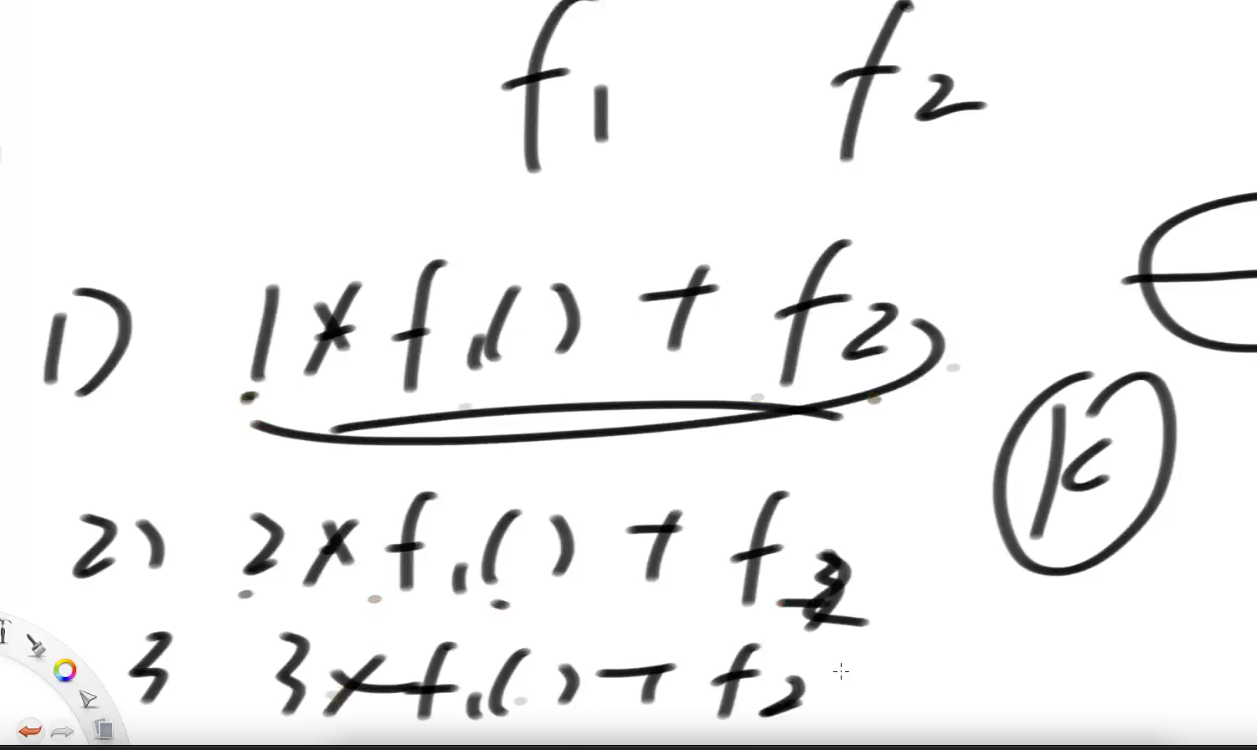 f1 f2
1) 1 × f1() + f2
K
2) 2 × f1() + f2
3 3 × f1() + f2